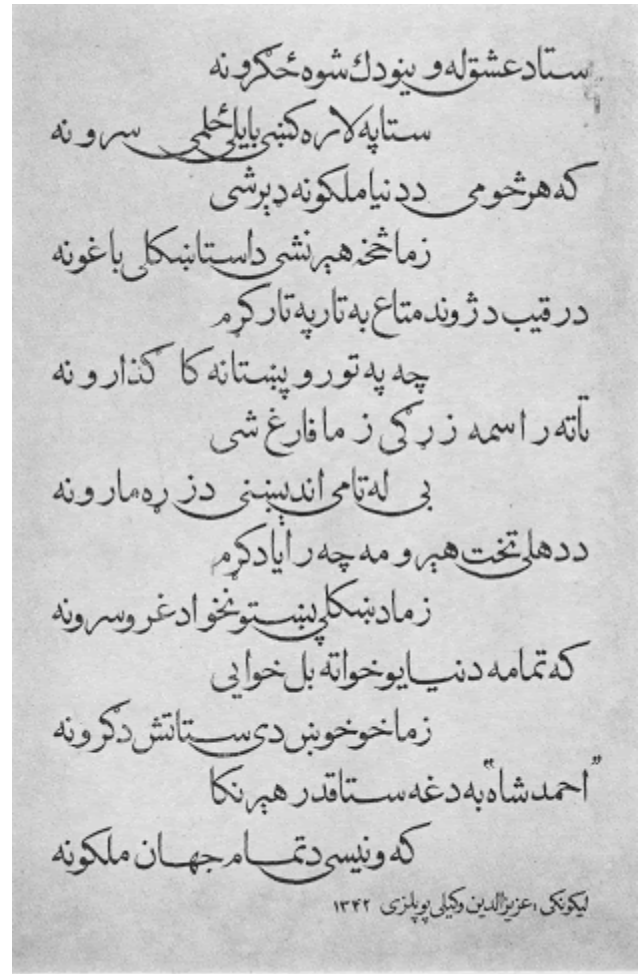 ستاد عشق له وينو ډك شوه ځګرونه
ستا په لاره كښی بايلی ځلمی سرونه
كه هر څومی ددنيا ملكونه ډېر شی
زما څخه هېر نشی داستا ښكلی باغونه
درقيب دژوند متاع به تار په تار كړم
چه په تورو پښتانه كا ګذارونه
تاته راسمه زړګی زما فارغ شی
بی له تا می اندېښنی دزړه مارونه
ددهلی تخت هېرومه چه را ياد كړم
زماد ښكلی پښتونخوا دغرو سرونه
كه تمامه دنيا يوخوا ته بل خوا يی
زما خو خوښ دی ستا تش ډګرونه
"احمد شاه" به دغه ستا قدر هېر نكا
كه ونيسی دتمام جهان ملكونه
ليكونكی ، عزيزالدين وكيلی پوپلزی ۱۳۴۲